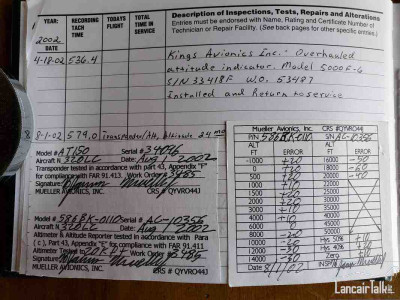 YEAR:
RECORDING TACH TIME
TODAYS FLIGHT
TOTAL TIME IN SERVICE
Description of Inspections, Tests, Repairs and Alterations
Entries must be endorsed with Name, Rating and Certificate Number of
Technician or Repair Facility. (See back pages for other specific entries.)
2002
DATE
4-18-02 536.4 Kings Avionics Inc.- Overhauled
attitude indicator. Model 5000F-6
S/N 33418F W.O. 53487
Installed and Return to service
8-1-02 574.0 Transponder/Alt, Altitude 24 mo
Model # AT150 Serial #
Aircraft N 320LC Date Aug 1 2002
Transponder tested in accordance with part 43, Appendix "F"
for compliance with FAR 91.413. Work Order # 3485
Signature
MUELLER AVIONICS, INC. CRS # QYVRO44J
Model # 586BK-0110 Serial # AG-10356
Aircraft N 320LC Date Aug 1 2002
Altimeter & Altitude Reporter tested in accordance with Para
(c), Part 43, Appendix "E" to compliance with FAR 91.411.
Altimeter tested to 20K ft. Work Order # 3485
Signature
MUELLER AVIONICS, INC. CRS # QYVRO44J
Mueller Avionics, Inc. CRS #QYVRO44J
P/N 586BK-0110 S/N AG-10356
ALT FT ERROR ALT FT ERROR
-1000 +20 16000 -50
0 +20 18000 -60
500 20000
1000 +10 22000
1500 25000
2000 30000
3000 35000
4000 40000
6000 45000
8000 50000
10000 Hys 50%
12000 Hys 40%
14000 -30 Zero
Date 8/1/02 INSP#
LancairTalk